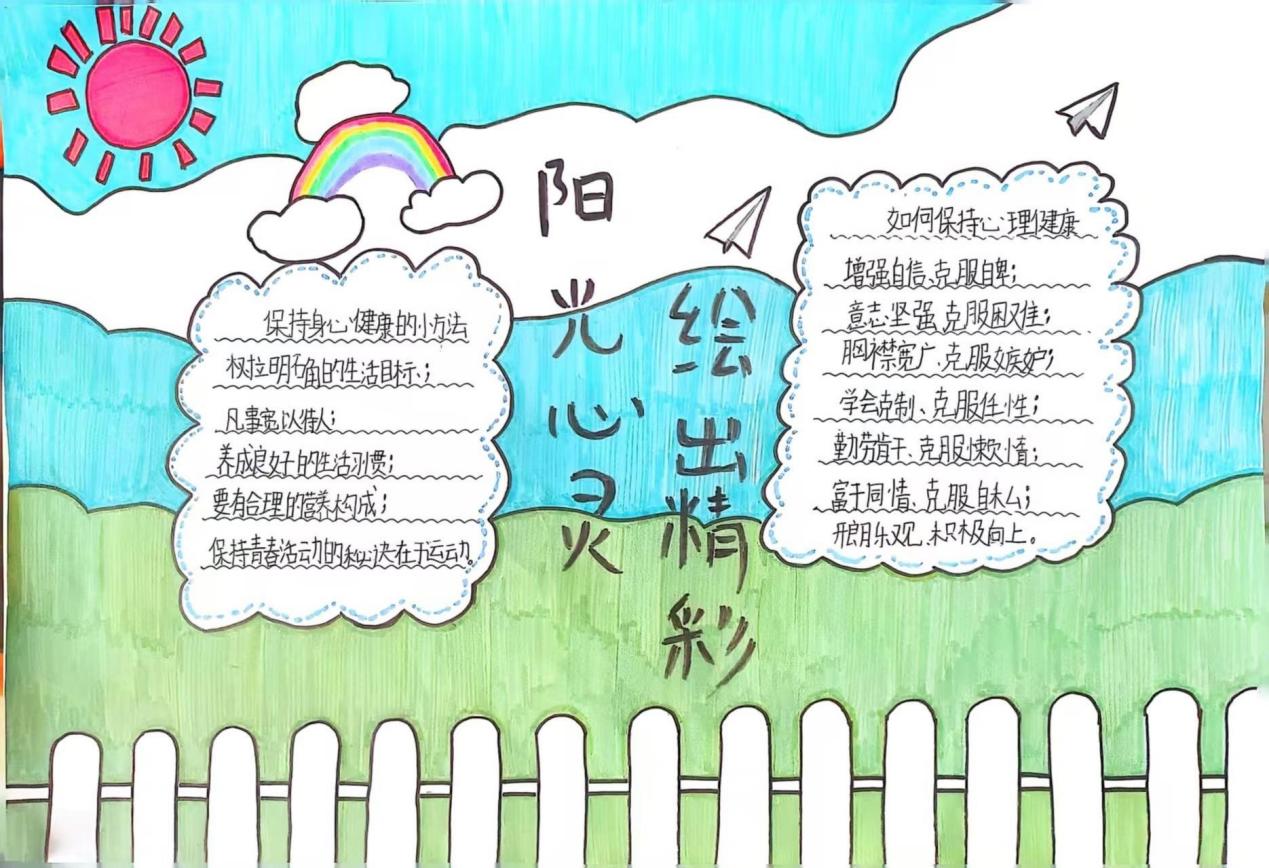 阳光心灵
绘出精彩
保持身心健康的小方法
树立明确的生活目标；
凡事宽以待人；
养成良好的生活习惯；
要有合理的营养构成；
保持青春活动的秘诀在于运动。
如何保持心理健康
增强自信、克服自卑；
意志坚强、克服困难；
胸襟宽广、克服嫉妒；
学会克制、克服任性；
勤劳肯干、克服懒惰；
富于同情、克服自私；
开朗乐观、积极向上。